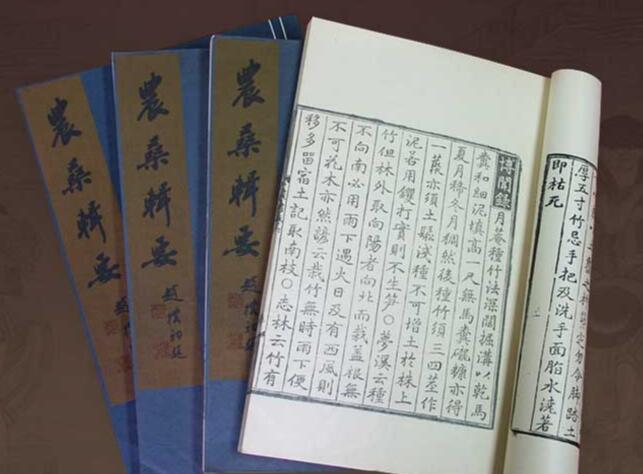 農桑輯要
趙樸初題
農桑輯要
趙樸初題
農桑輯要
趙樸初題
勿令脚踏土
厚五寸竹忌手把及洗手面脂水澆著
即枯死
博聞錄月菴種竹法深闊掘溝以乾馬
糞和細泥填高一尺無馬糞礱糠亦得
夏月稀冬月稠然後種竹須三四莖作
一藂亦須土鬆淺種不可增土於株上
泥若用钁打實則不生笋○夢溪云種
竹但林外取向陽者向北而栽蓋根無
不向南必用雨下遇火日及有西風則
不可花木亦然諺云栽竹無時雨下便
移多留宿土記取南枝○志林云竹有